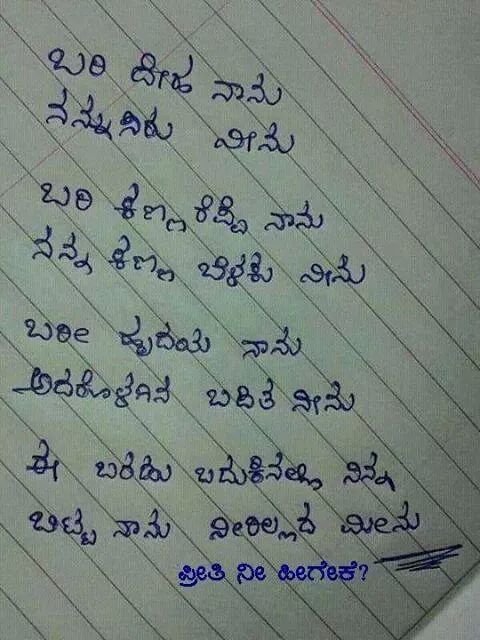 ಬರಿ ದೇಹ ನಾನು
ನನ್ನುಸಿರು ನೀನು
ಬರಿ ಕಣ್ಣ ರೆಪ್ಪೆ ನಾನು
ನನ್ನ ಕಣ್ಣ ಬೆಳಕು ನೀನು
ಬರೀ ಹೃದಯ ನಾನು
ಅದರೊಳಗಿನ ಬಡಿತ ನೀನು
ಈ ಬರಡು ಬದುಕಿನಲ್ಲಿ ನಿನ್ನ
ಬಿಟ್ಟ ನಾನು ನೀರಿಲ್ಲದ ಮೀನು
ಪ್ರೀತಿ ನೀ ಹೀಗೇಕೆ?